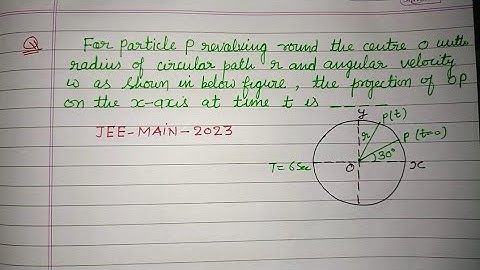 Q For particle P revolving round the centre O with
radius of circular path r and angular velocity
ω as shown in below figure, the projection of OP
on the x-axis at time t is _ _ _ _
JEE-MAIN-2023
y
P(t)
r
P(t=0)
30°
T = 6 Sec
O
x